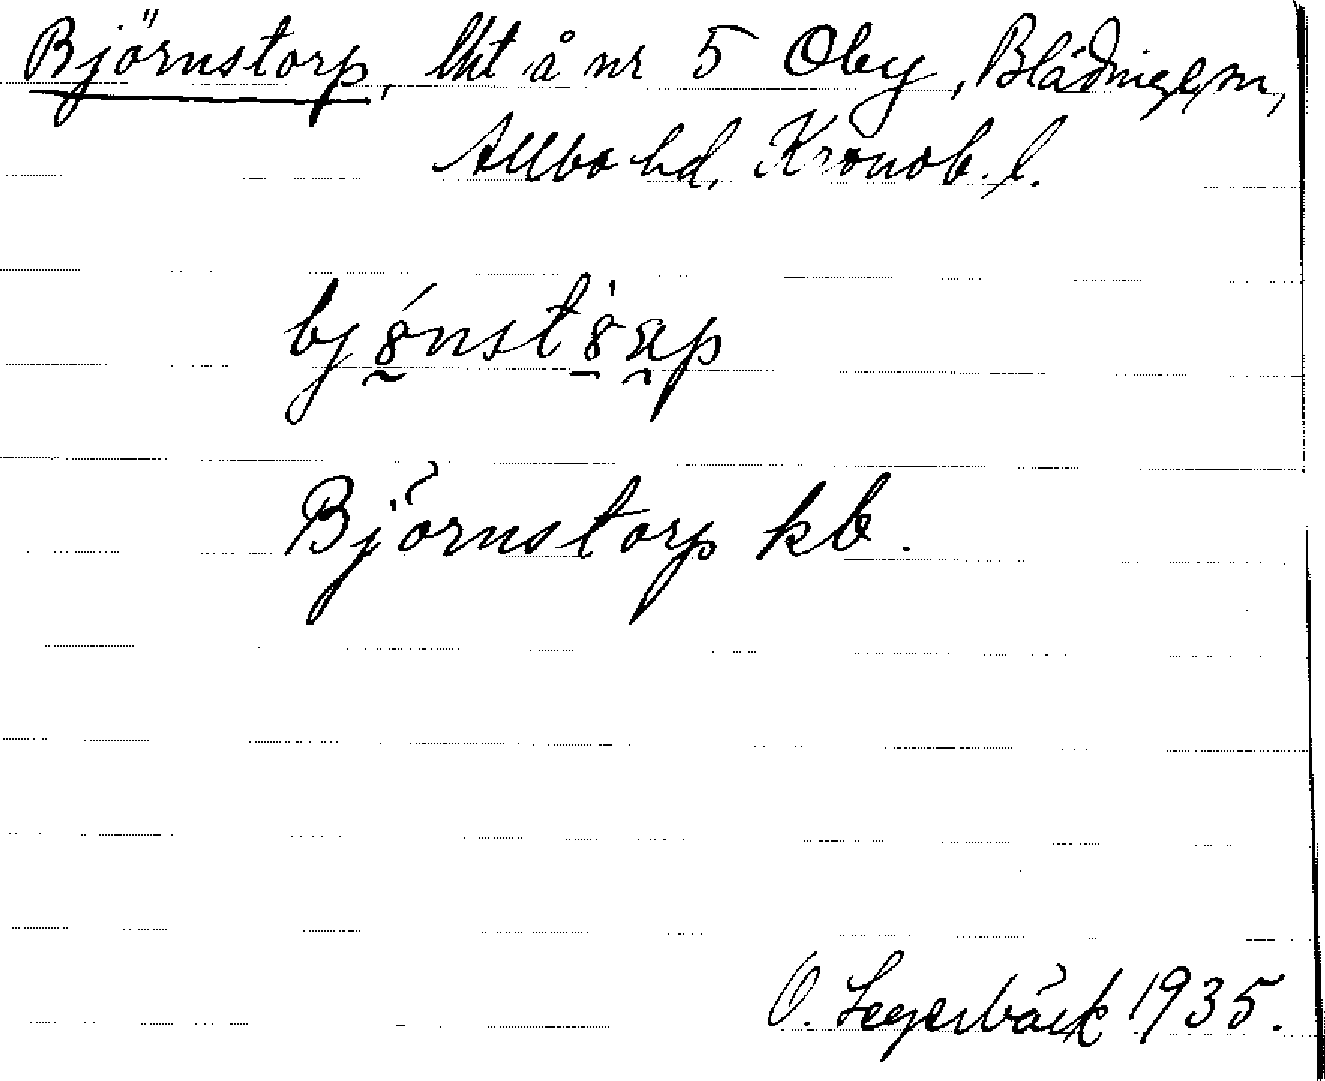 Björnstorp, lht å nr 5 Oby, Blädinge sn,
Allbo hd, Kronob. l.
Björnstorp kb.
O. Segerbäck 1935.